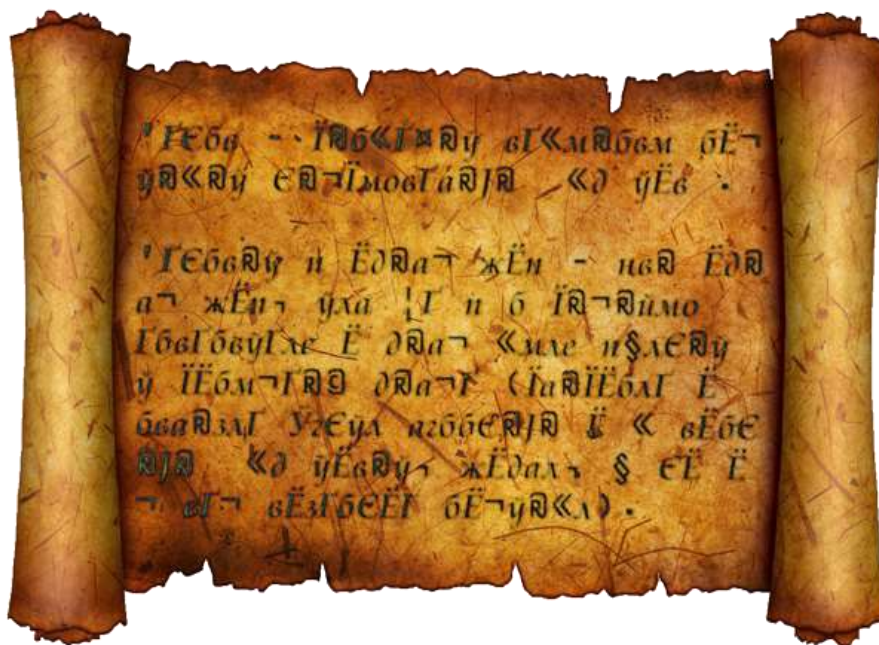 ’ҐЄбв - · Ї®б«Ґ¤®ў вҐ«м®бвм бЁ¬
ў®«®ў Є®¬ЇмовҐа®Ј® «д ўЁв .
’ҐЄбв®ў п Ёд®а¬ жЁп - нв® Ёд®
а¬ жЁп¬ ўла ¦Ґ п б Ї®¬®ймо
ҐбвҐбвўҐле Ё д®а¬ «мле п§лЄ®ў
ў ЇЁбм¬Ґ®© д®а¬Ґ (Їа®ЇЁблҐ Ё
бва®злҐ ЎгЄўл агббЄ®Ј® Ё « вЁбЄ
®Ј® «д ўЁв®ў¬ жЁдал¬ § ЄЁ Ё
¬ вҐ¬ вЁзҐбЄЁҐ бЁ¬ў®«л).